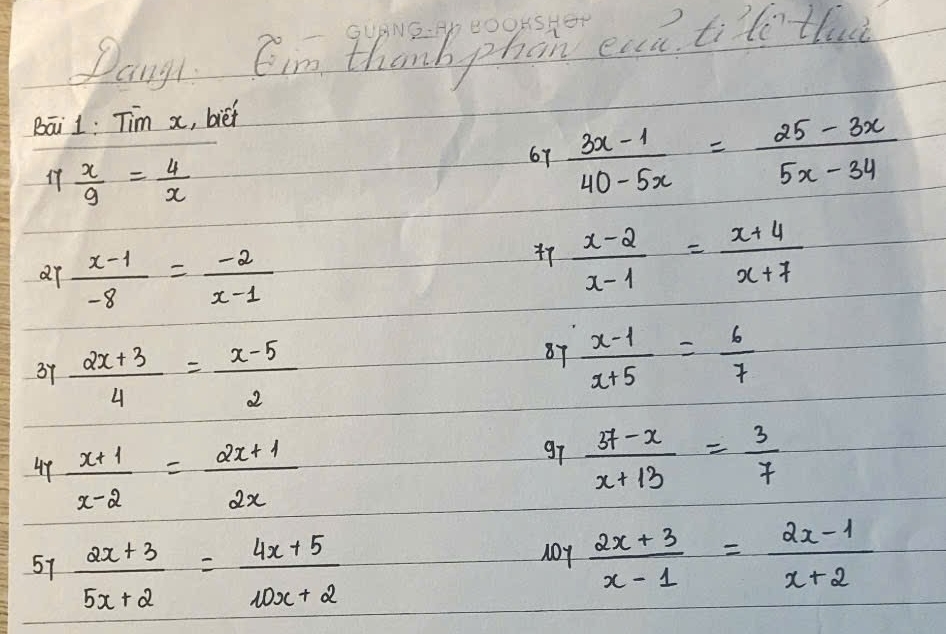 QUANG-AN BOOKSHOP
Dạng1. Tìm thành phần của tỉ lệ thức
Bài 1: Tìm x, biết
1) x/9 = 4/x
2) (x-1)/(-8) = (-2)/(x-1)
3) (2x+3)/4 = (x-5)/2
4) (x+1)/(x-2) = (2x+1)/(2x)
5) (2x+3)/(5x+2) = (4x+5)/(10x+2)
6) (3x-1)/(40-5x) = (25-3x)/(5x-34)
7) (x-2)/(x-1) = (x+4)/(x+7)
8) (x-1)/(x+5) = 6/7
9) (37-x)/(x+13) = 3/7
10) (2x+3)/(x-1) = (2x-1)/(x+2)